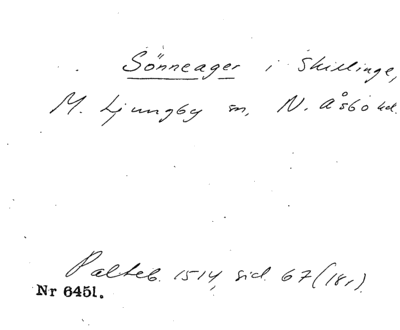 Sönneager i Skillinge,
M. Ljungby sn, N. Åsbo hd.
Palteb. 1514, sid. 67 (181).
Nr 6451.